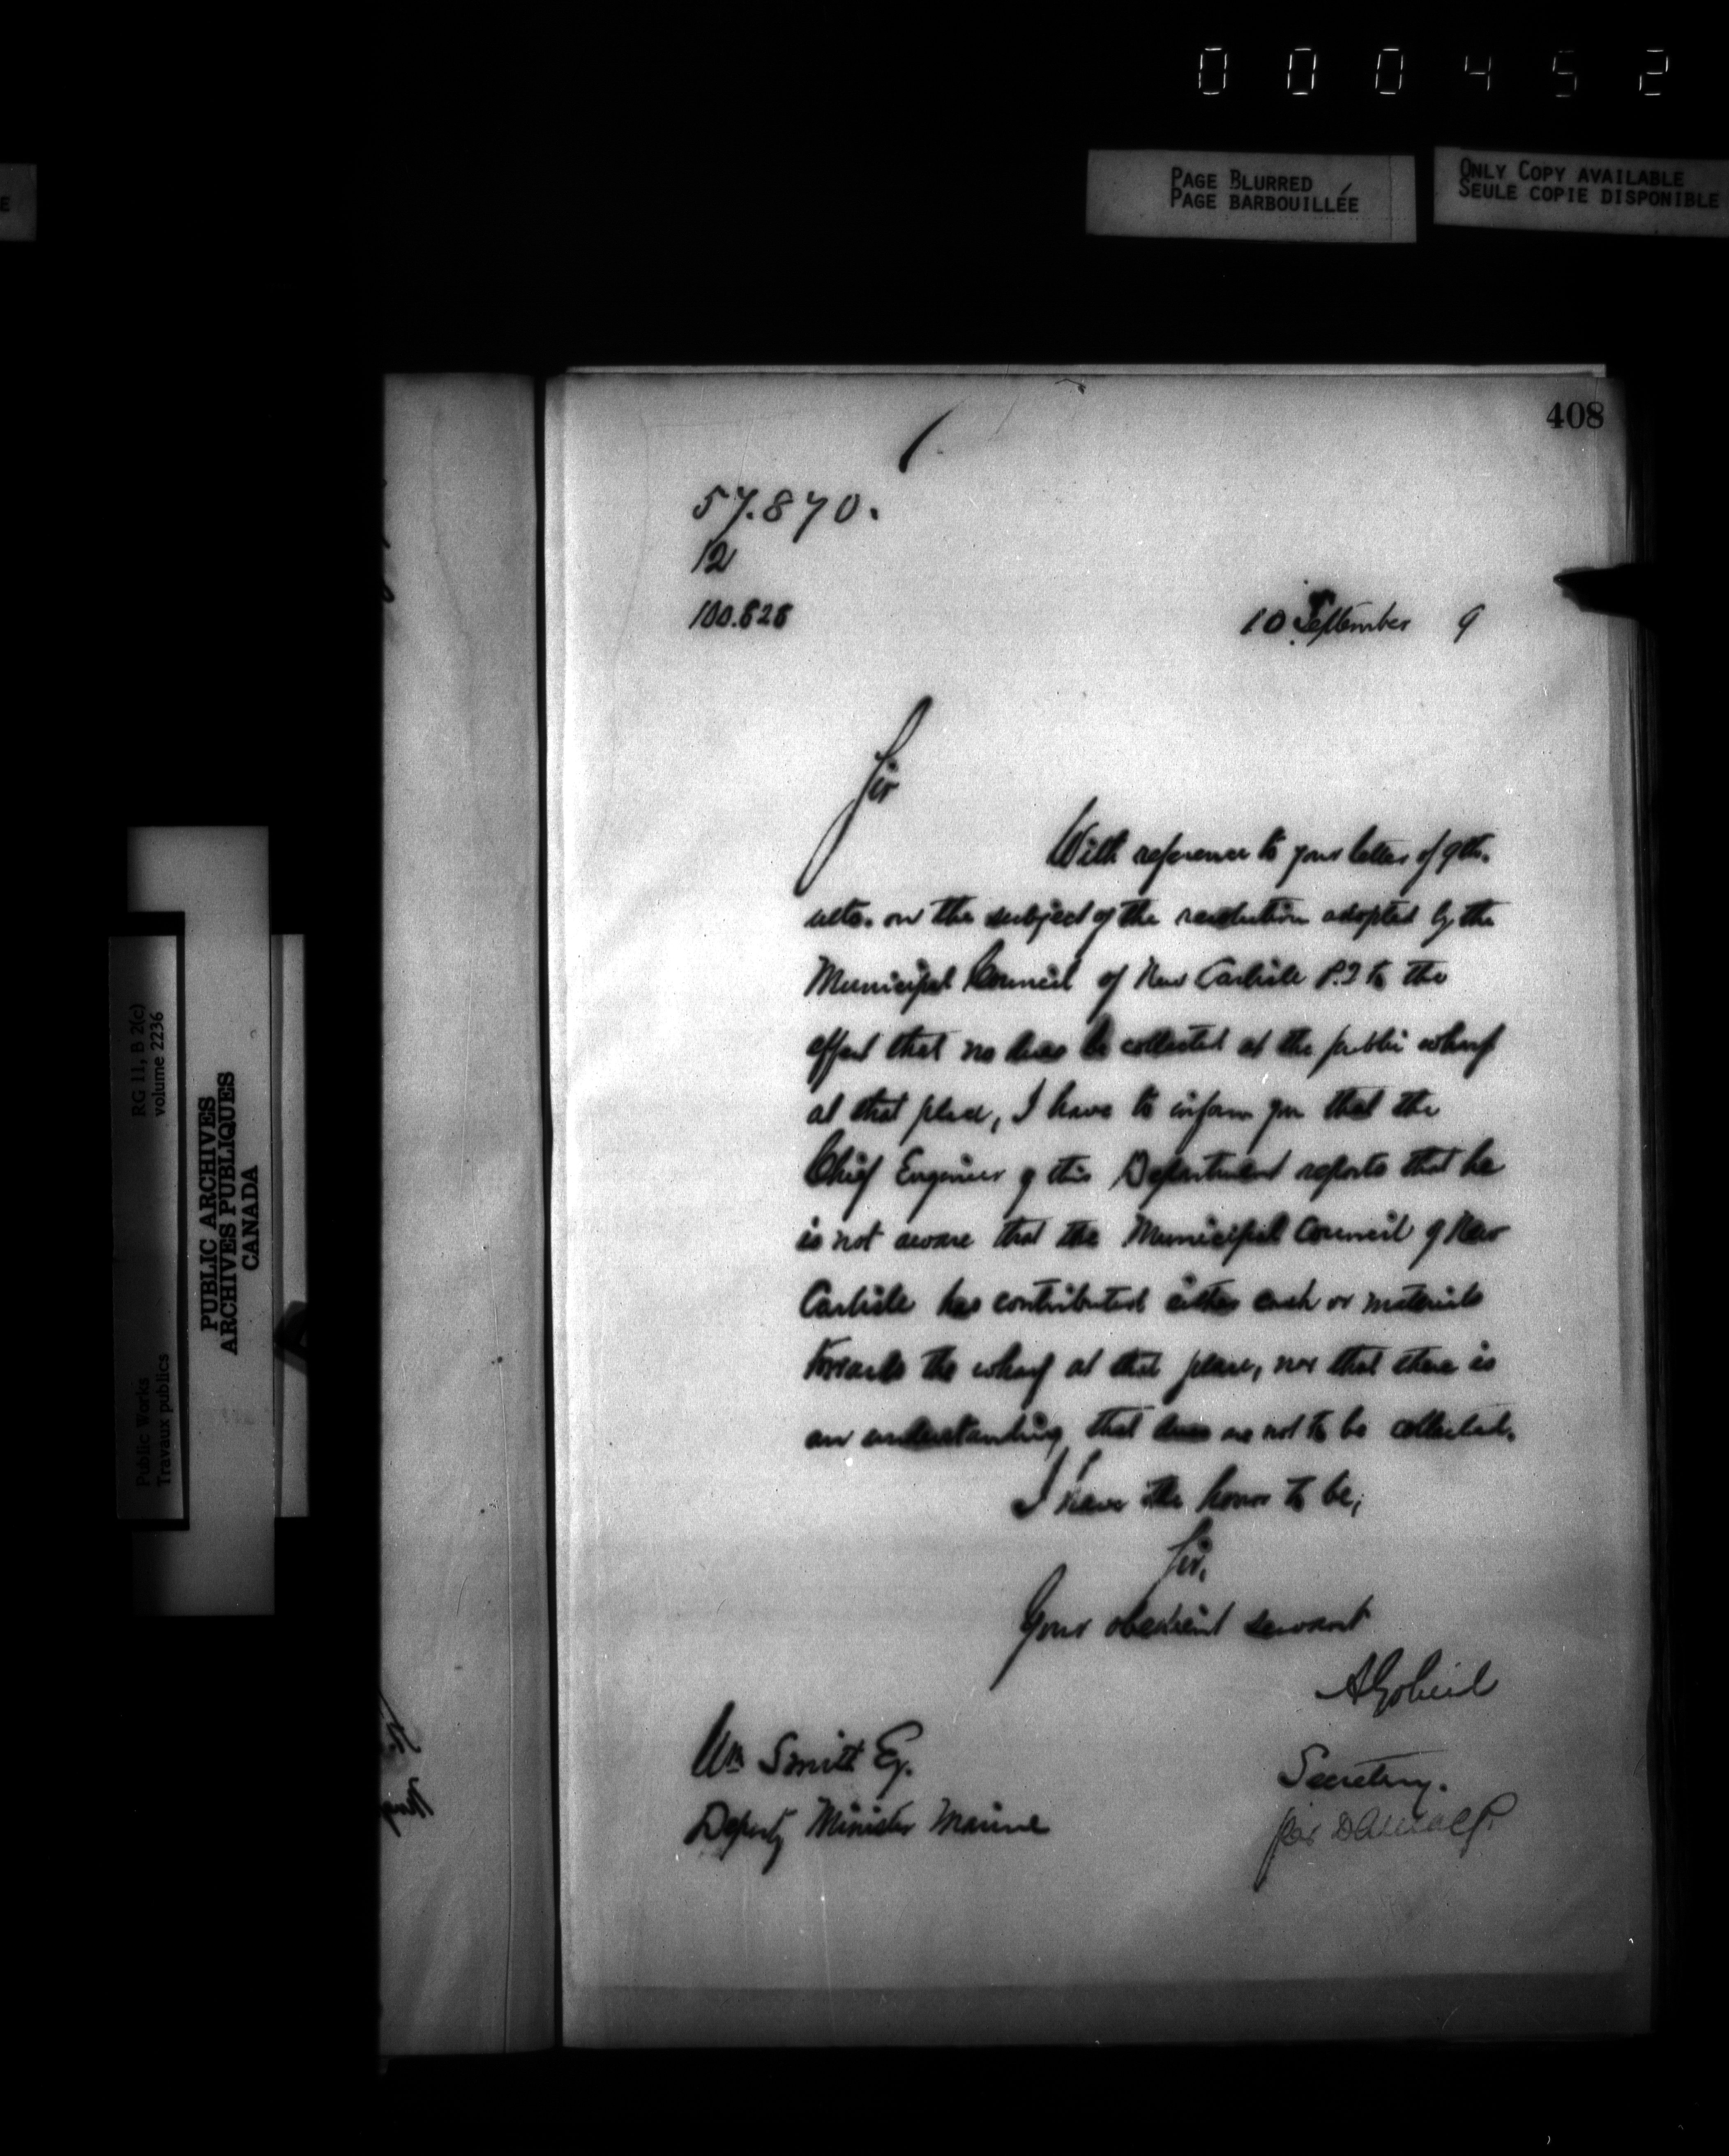 000452
PAGE BLURRED
PAGE BARBOUILLÉE
ONLY COPY AVAILABLE
SEULE COPIE DISPONIBLE
E
408
57.870.
12
100.828
10 September 9
Sir
With reference to your letter of 9th.
ulto. on the subject of the resolution adopted by the
Municipal Council of New Carlisle P.Q to the
effect that no dues be collected at the public wharf
at that place, I have to inform you that the
Chief Engineer of this Department reports that he
is not aware that the Municipal Council of New
Carlisle has contributed either cash or materials
towards the wharf at that place, nor that there is
an understanding that dues are not to be collected.
I have the honor to be,
Sir,
Your obedient servant
A Gobeil
Secretary.
Wm Smith Esq.
Deputy Minister Marine
RG 11, B 2(c)
volume 2236
Public Works
Travaux publics
PUBLIC ARCHIVES
ARCHIVES PUBLIQUES
CANADA